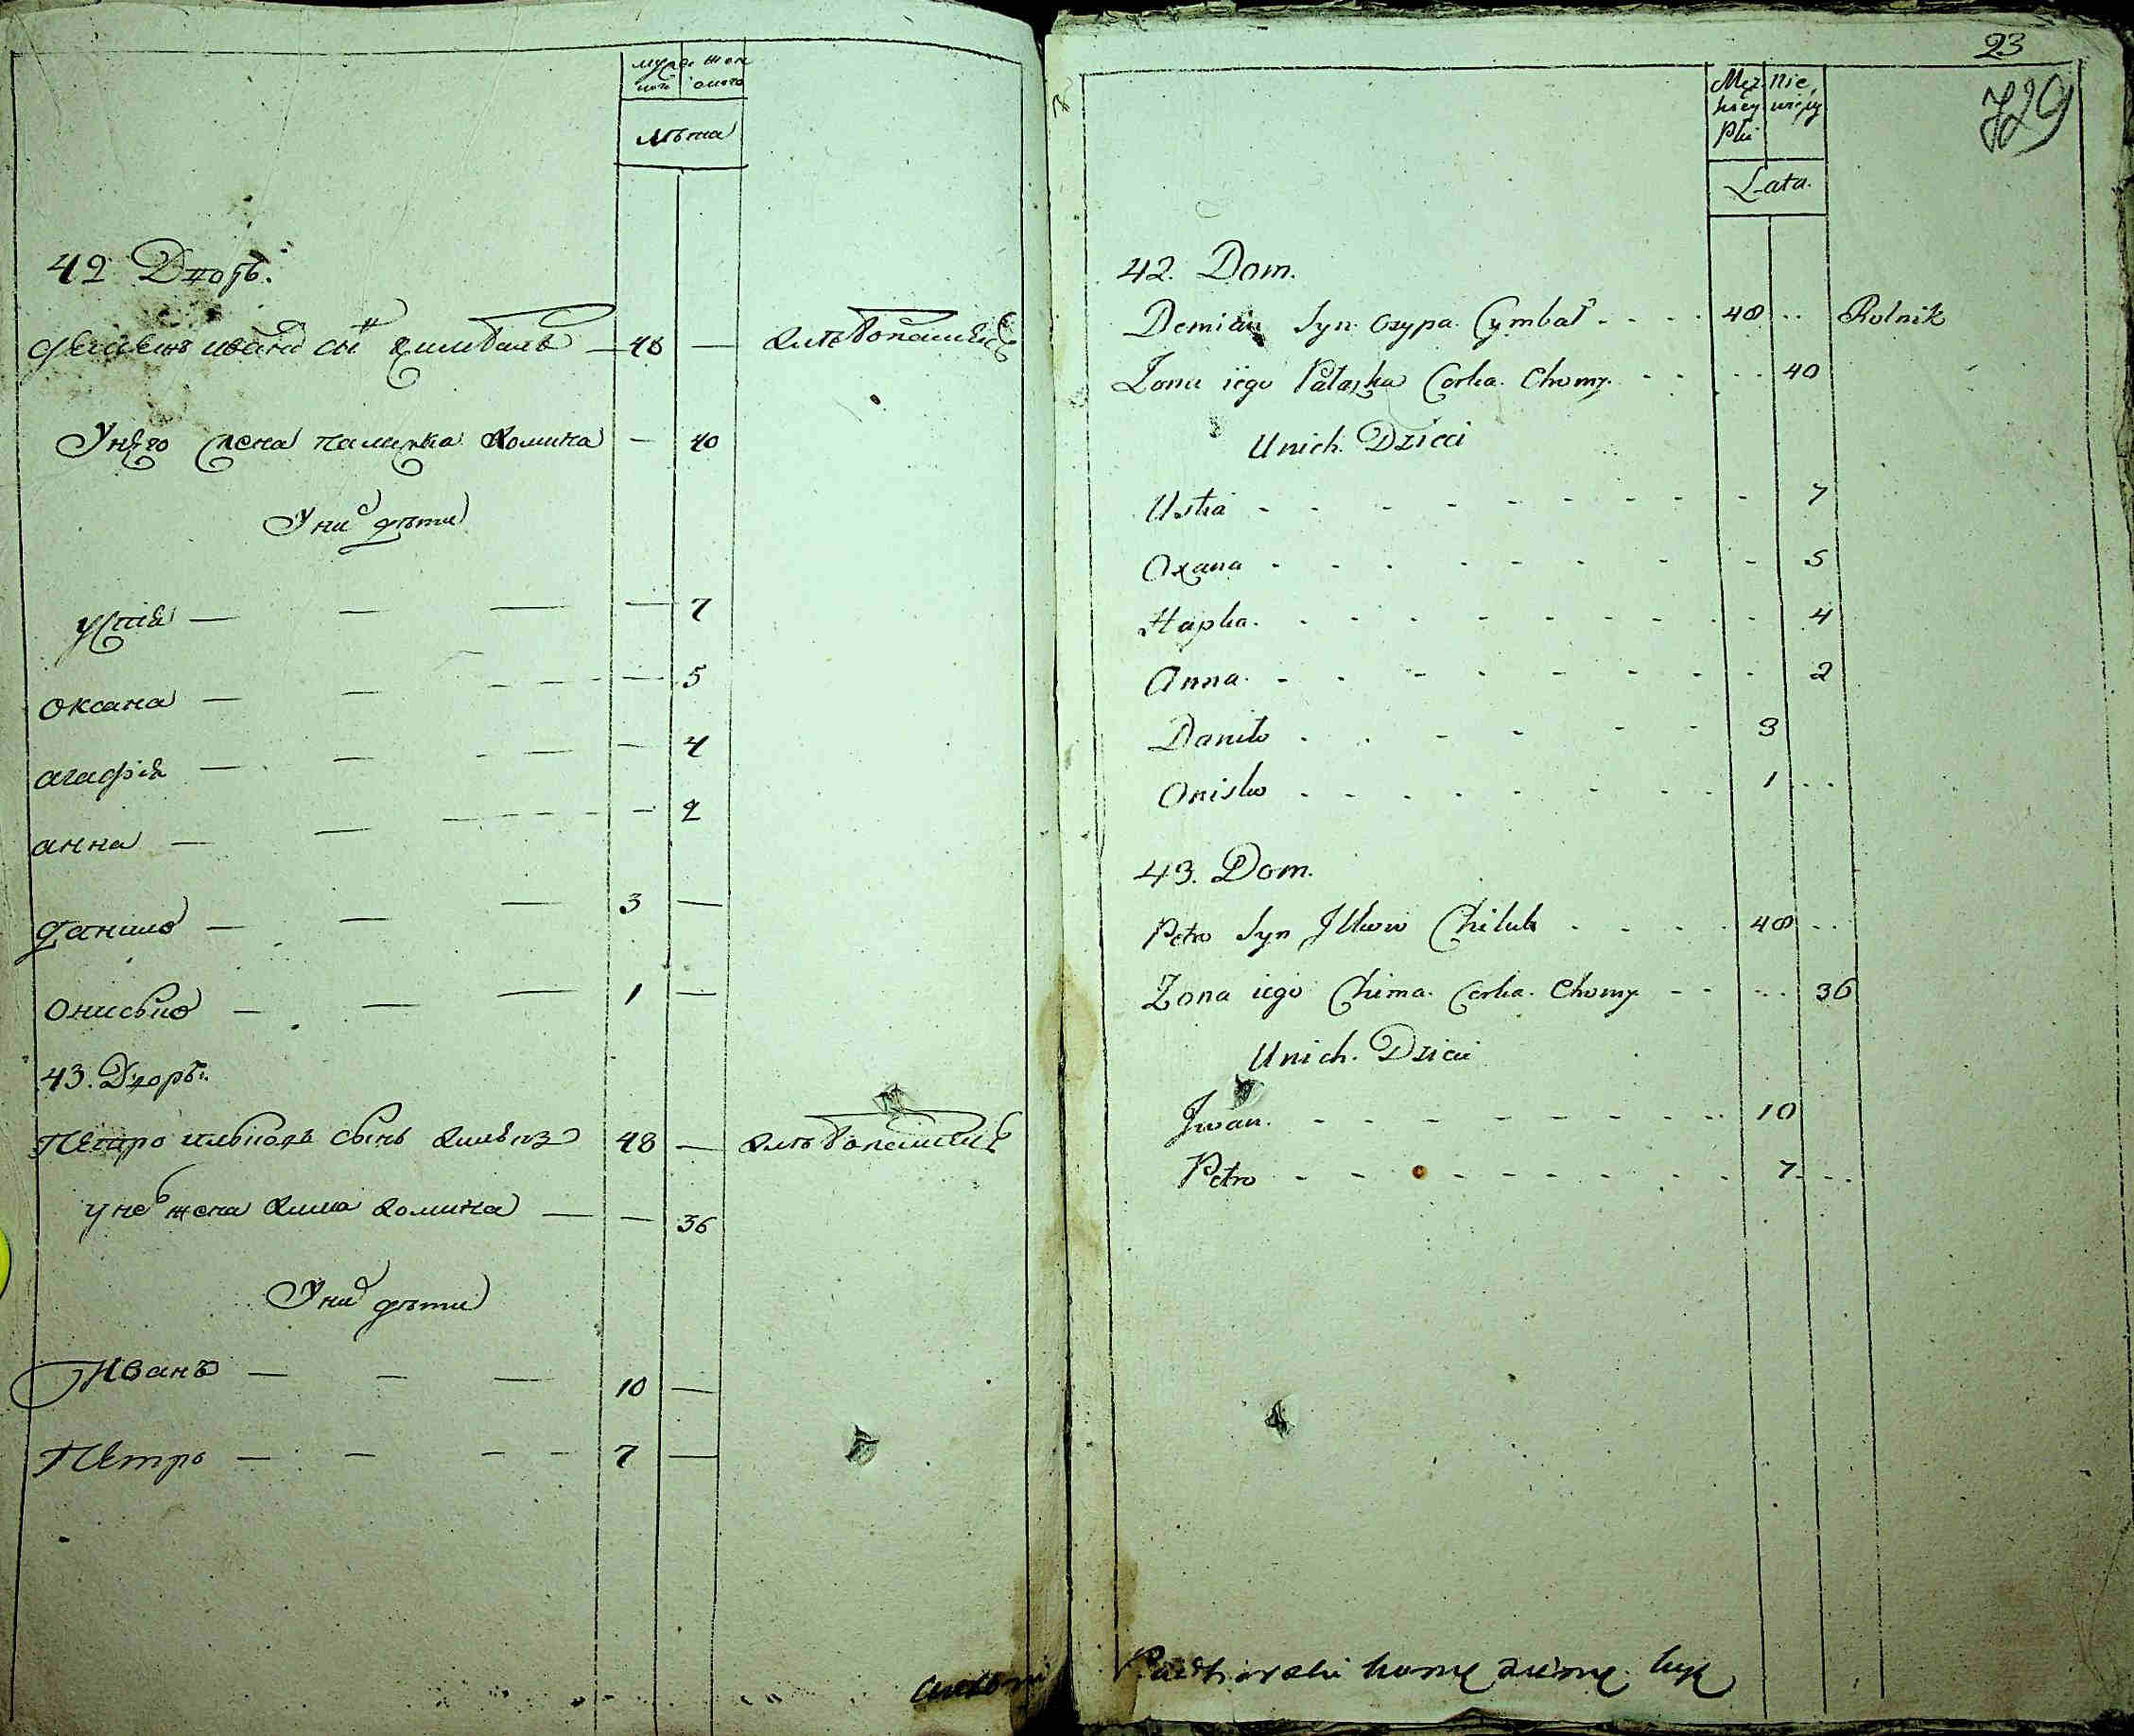 муже жен
ска скаго
лѣта
42 Дворъ.
Демьянъ ивана сынъ Цимбалъ — 48 — хлѣбопашецъ
У него жена палажка хомина — 40
У них дѣти
устія — — — — 7
оксана — — — — 5
агафия — — — — 4
анна — — — — 2
данило — — — 3 —
онисько — — — 1 —
43. Дворъ.
Петро ильковъ сынъ 48 — хлѣбопашецъ
у нево жена хима хомина — — 36
У них дѣти
Иванъ — — — 10 —
Петро — — — 7 —
23
729
Męz Nie
kiey wiejey
Płci
Lata.
42. Dom.
Demian Syn Osypa Cymbał - - - - 48 .. Rolnik
Zona iego Pałaszka Corka Chomy - - - - 40
Unich Dzieci
Ustia - - - - - - - - - 7
Oxana - - - - - - - - - 5
Hapka. - - - - - - - - - 4
Anna. - - - - - - - - - 2
Daniło - - - - - - 3
Onisko - - - - - - - - 1 ...
43. Dom.
Petro Syn Ilkow - - - - 48 ..
Zona iego Chima Corka Chomy - - - - 36
Unich. Dzieci
Iwan. - - - - - - - - - 10
Petro - - - - - - - - - 7 ...